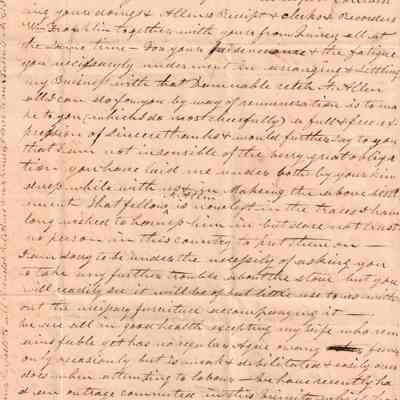 ing your doings & Allens Receipt & clerks & Recorders
Wm Franklin together with yours from Surrey all at
the same time — For your & the fatigue
you necessarily underwent in arranging & settling
my Business with that Damnable retch A. Allen
all I can do for you by way of remuneration is to ma
ke to you (which I do most cheerfully) a full & free ex
pression of sincere thanks & would further say to you
that I am not insensible of the very great obliga
tion you have laid me under both by your kin
dness while with you in Making the above settl
ement That fellow A. Allen is now lost in the traces I have
long wished to him in but dare not trust
no person in this country to put them on —
I am sorry to be under the necessity of asking you
to take any further trouble about the stove but you
will readily see it will be of but little use to us with
out the necessary furniture accompanying it —
We are all in good health excepting my wife who rem
ains feeble yet has no regular Ague or any fever
only occasionly but is weak & debilitated & easily over
does when attempting to labour — We have recently ha
d an outrage committed in this